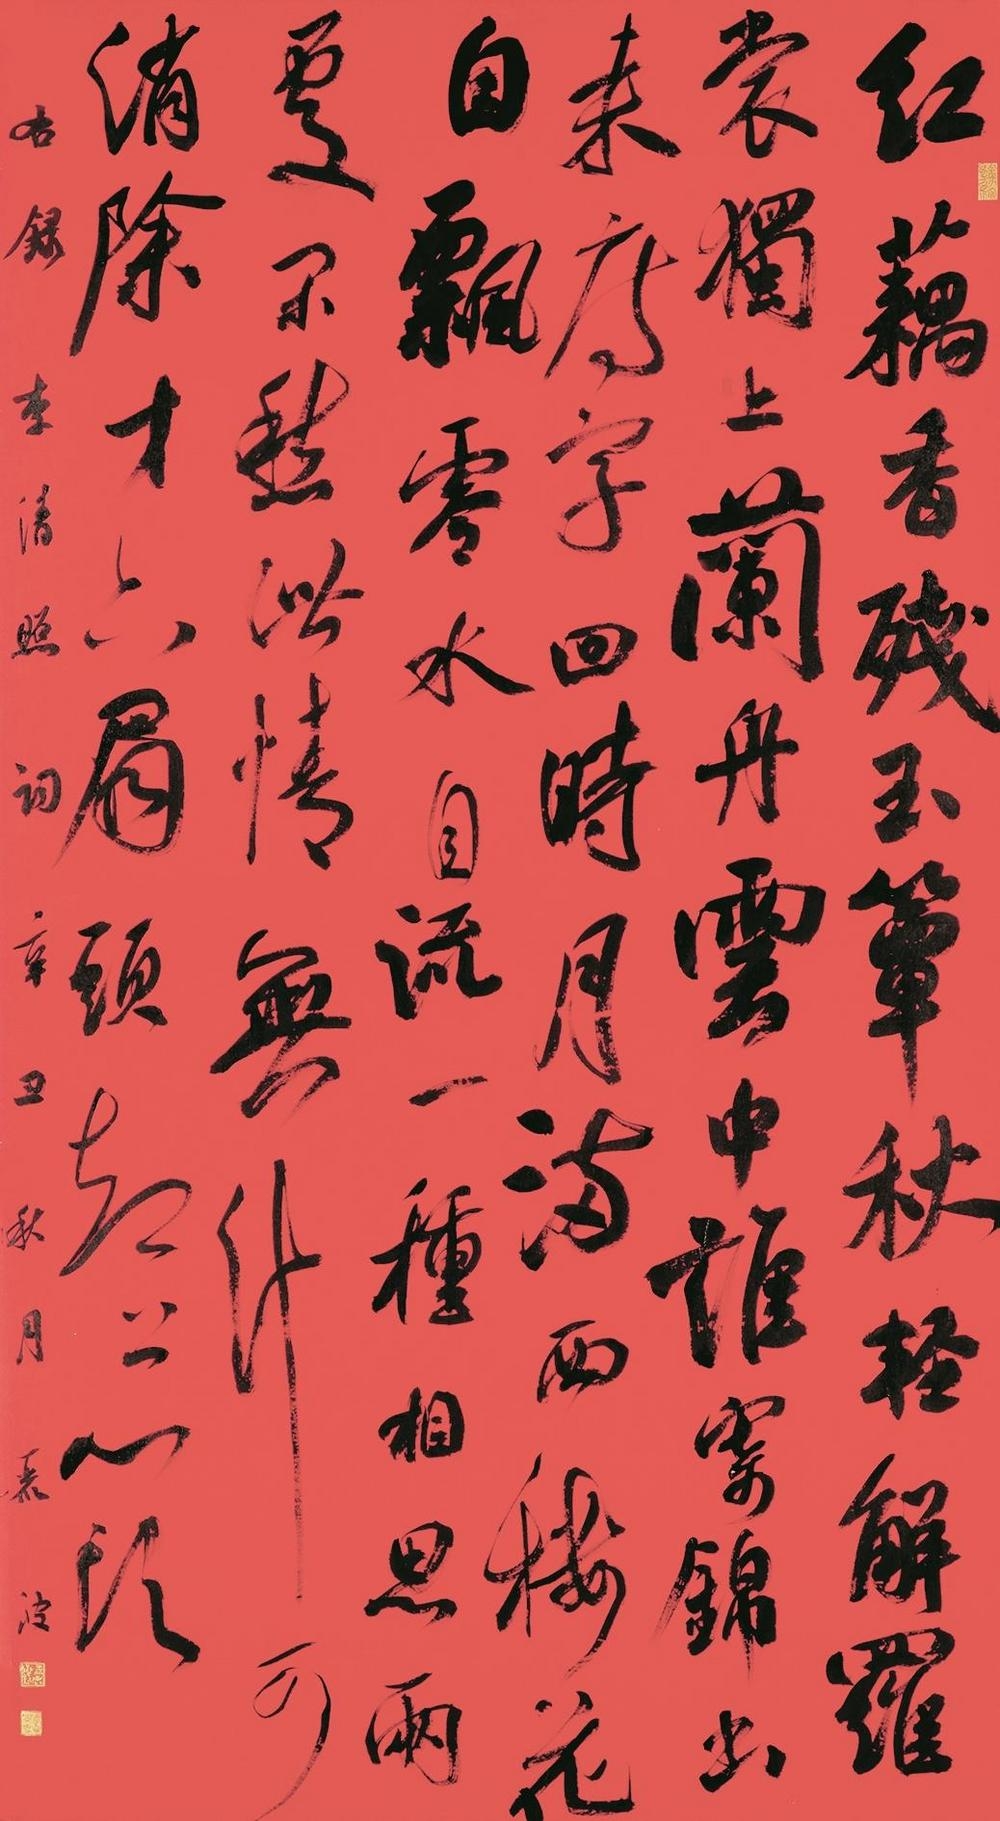 红藕香殘玉簟秋輕解羅
裳獨上蘭舟雲中誰寄錦書
来雁字回時月滿西樓花
自飄零水自流一種相思兩
處閒愁此情無計可
消除才下眉頭却上心頭
右録李清照詞辛丑秋月波